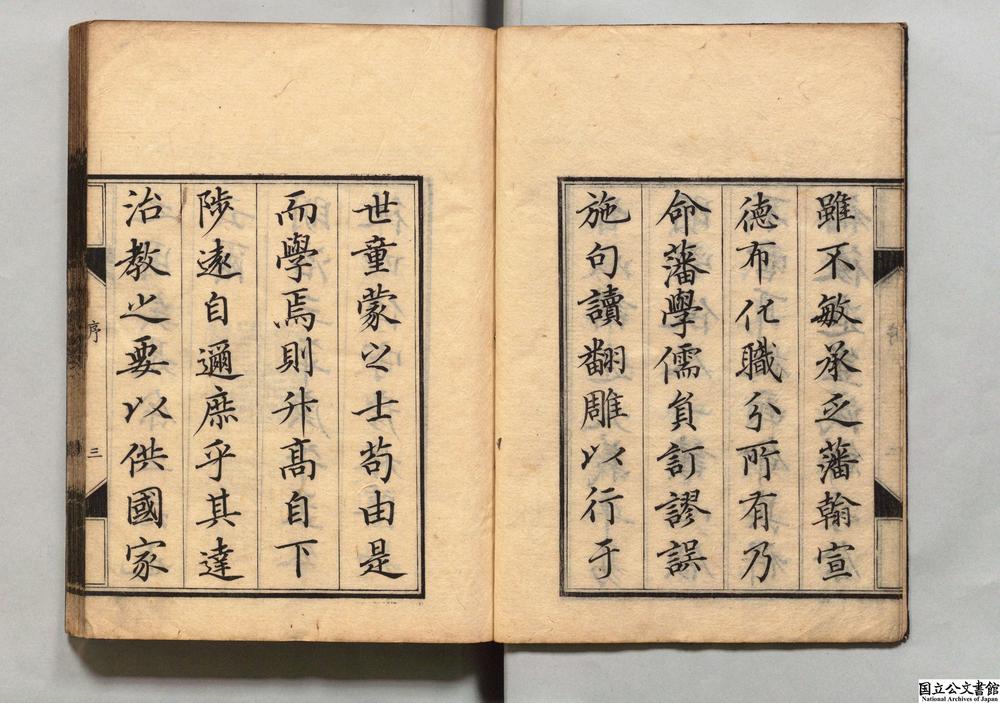 雖不敏承乏藩翰宣
徳布化職分所有乃
命藩學儒員訂謬誤
施句讀翻雕以行于
世童蒙之士苟由是
而學焉則升高自下
陟遠自邇庶乎其達
治教之要以供國家
序
三
国立公文書館
National Archives of Japan